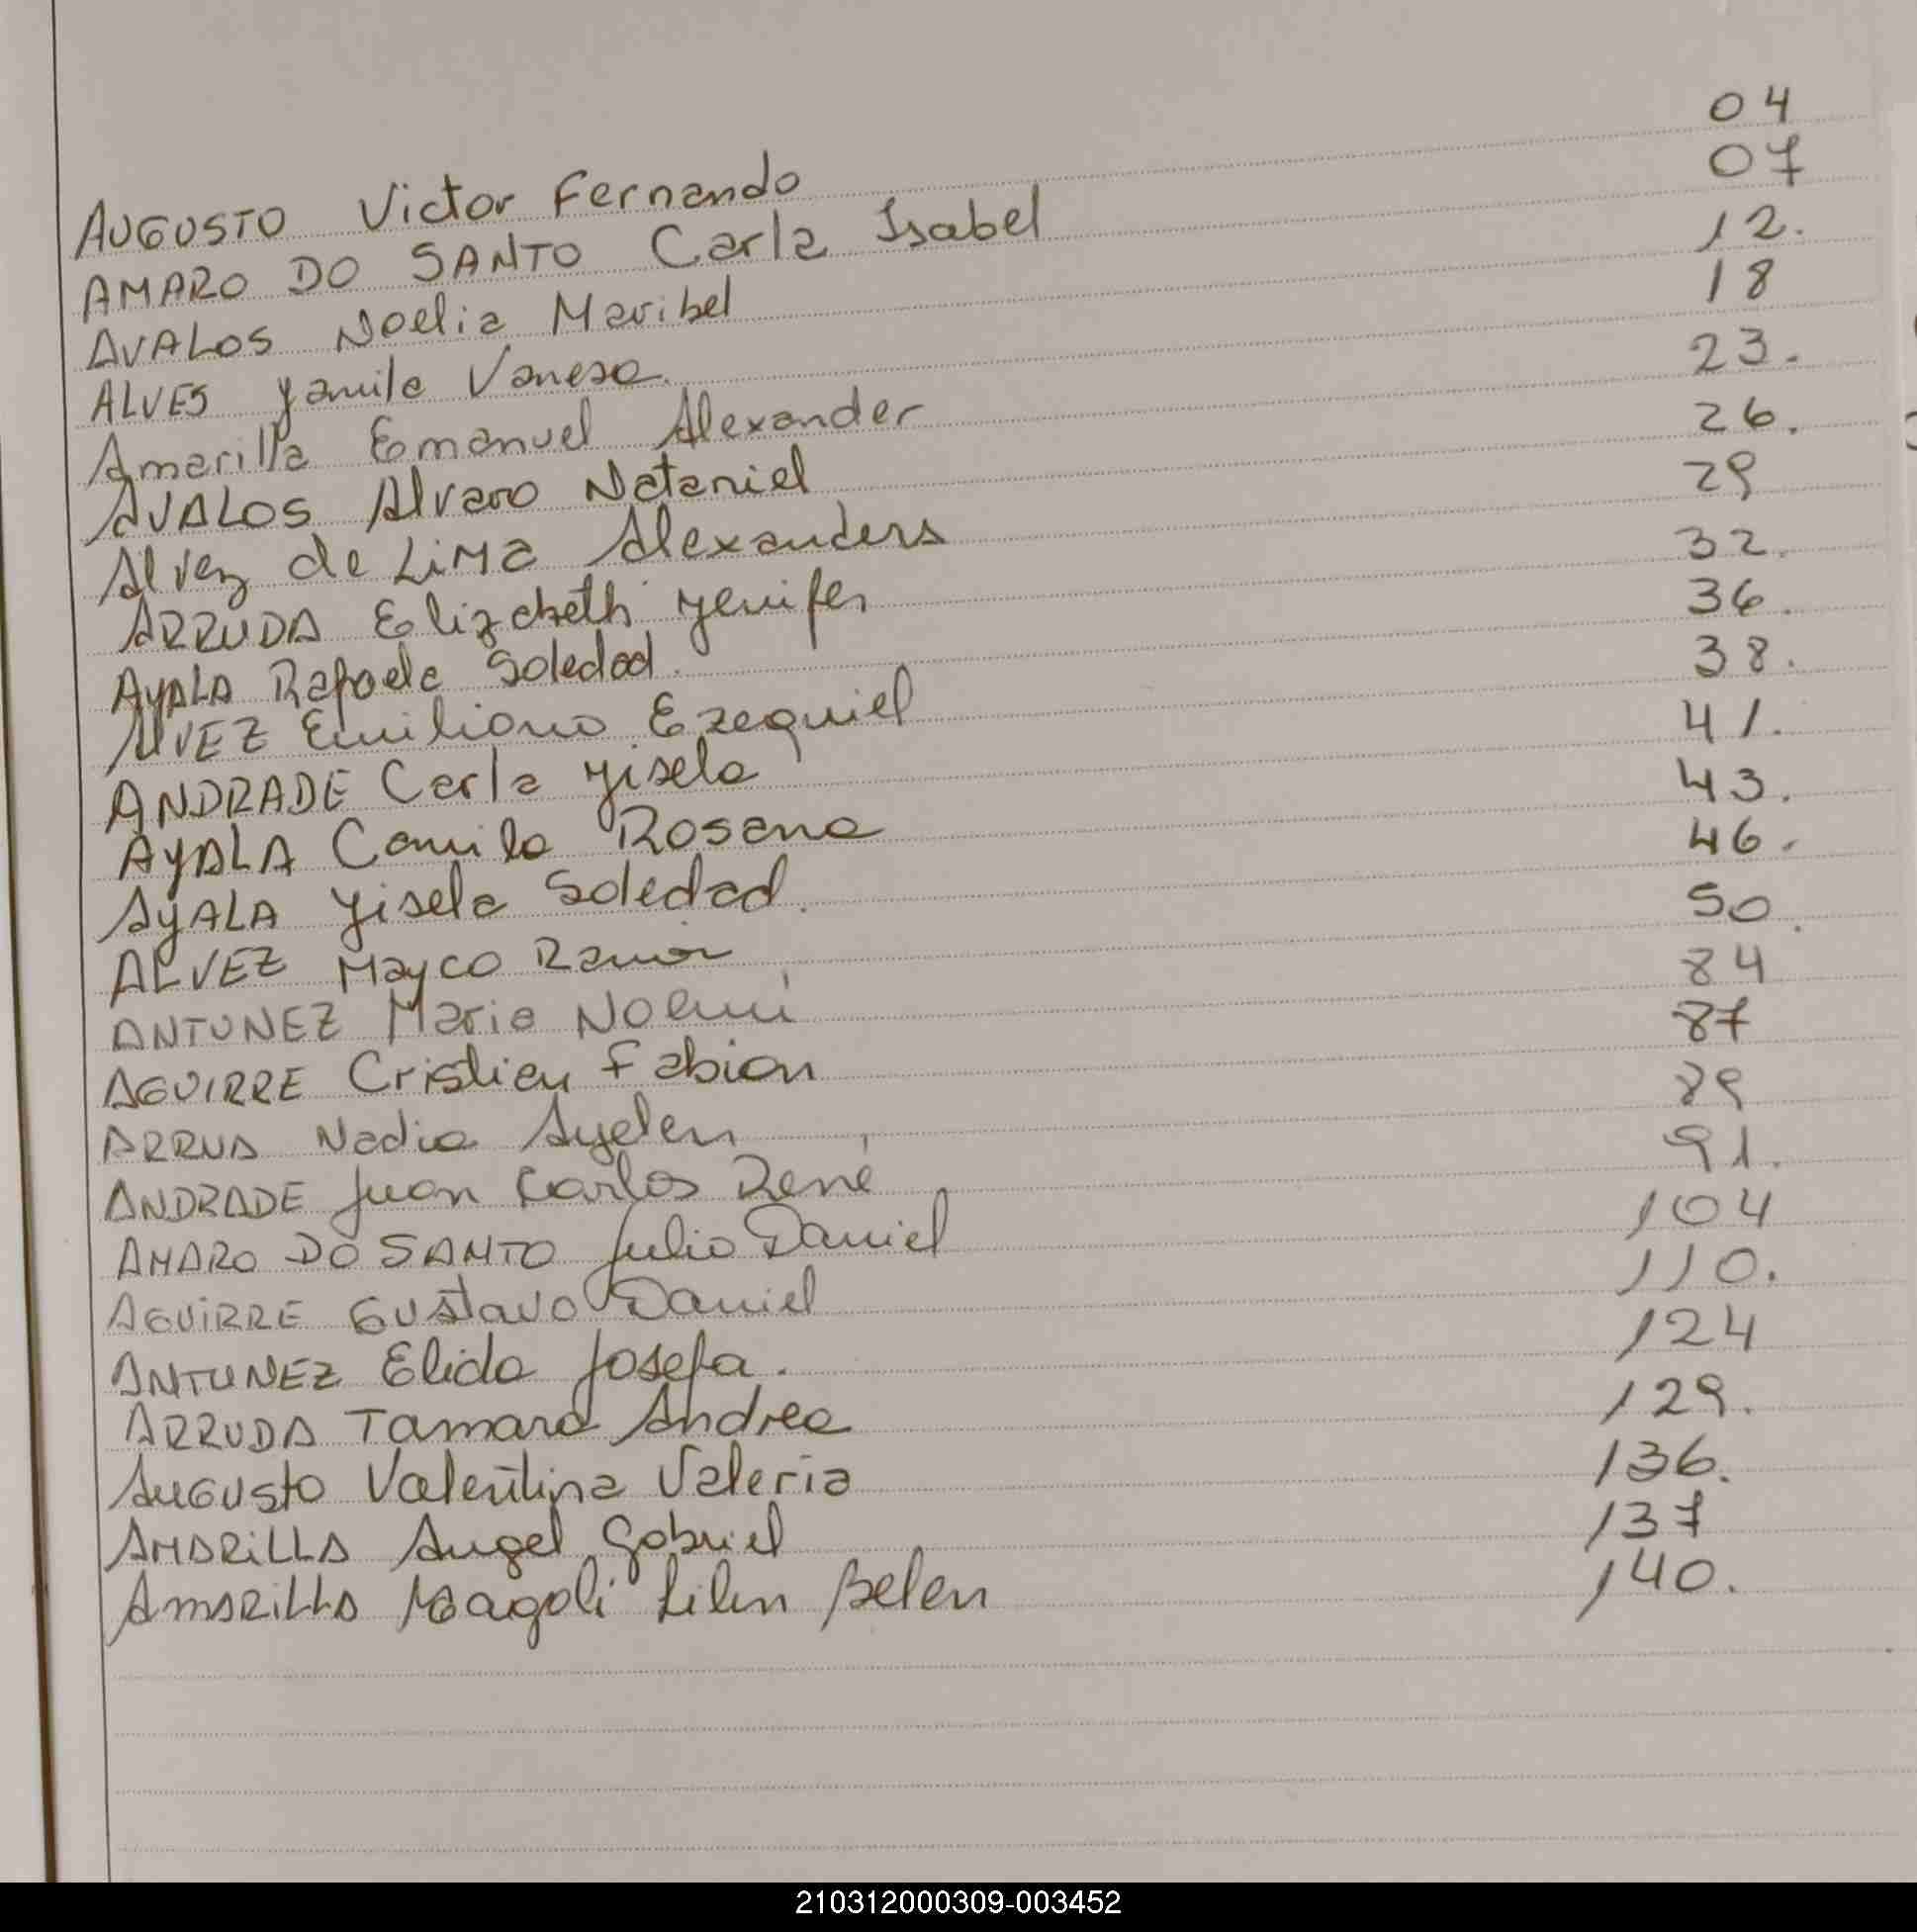 AUGUSTO Victor Fernando 04
AMARO DO SANTO Carla Isabel 07
AVALOS Noelia Maribel 12.
ALVES Yamila Vanesa. 18
Amarilla Emanuel Alexander 23.
AVALOS Alvaro Nataniel 26.
Alvez de LiMa Alexanders 29
ARRUDA Elizabeth Yenifer 32.
AYALA Rafaela Soledad. 36.
ALVEZ Emiliano Ezequiel 38.
ANDRADE Carla Yisela 41.
AYALA Camila Rosana 43.
AyALA Yisela Soledad. 46.
ALVEZ Mayco Ramón 50.
ANTUNEZ Maria Noemí 84
AGUIRRE Cristian Fabian 87
ARRUA Nadia Ayelen 89
ANDRADE Juan Carlos René 91.
AMARO DO SANTO Julio Daniel 104
AGUiRRE Gustavo Daniel 110.
ANTUNEZ Elida Josefa. 124
ARRUDA Tamara Andrea 129.
AuGusto Valentina Valeria 136.
AMARiLLA Angel Gabriel 137
AmARiLLA Magali Lilen Belen 140.
210312000309-003452